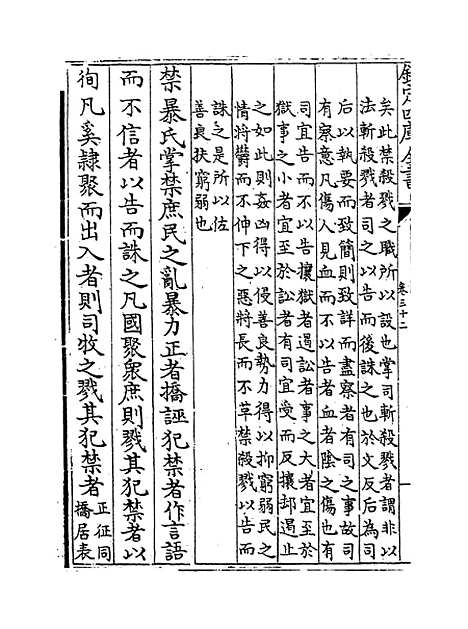 欽定四庫全書
卷三十二
矣此禁殺戮之職所以設也掌司斬殺戮者謂非以
法斬殺戮者司之以告而後誅之也於文反后為司
后以執要而致簡則致詳而盡察者有司之事故司
有察意凡傷人見血而不以告者血者陰之傷也有
司宜告而不以告攘獄者遏訟者事之大者宜至於
獄事之小者宜至於訟者有司宜受而反攘卻遏止
之如此則姦凶得以侵善良勢力得以抑窮弱民之
情將鬱而不伸下之惡將長而不草禁殺戮以告而
誅之是所以佐
善良扶窮弱也
禁暴氏掌禁庶民之亂暴力正者撟誣犯禁者作言語
而不信者以告而誅之凡國聚衆庶則戮其犯禁者以
徇凡奚隸聚而出入者則司牧之戮其犯禁者正征同
撟居表